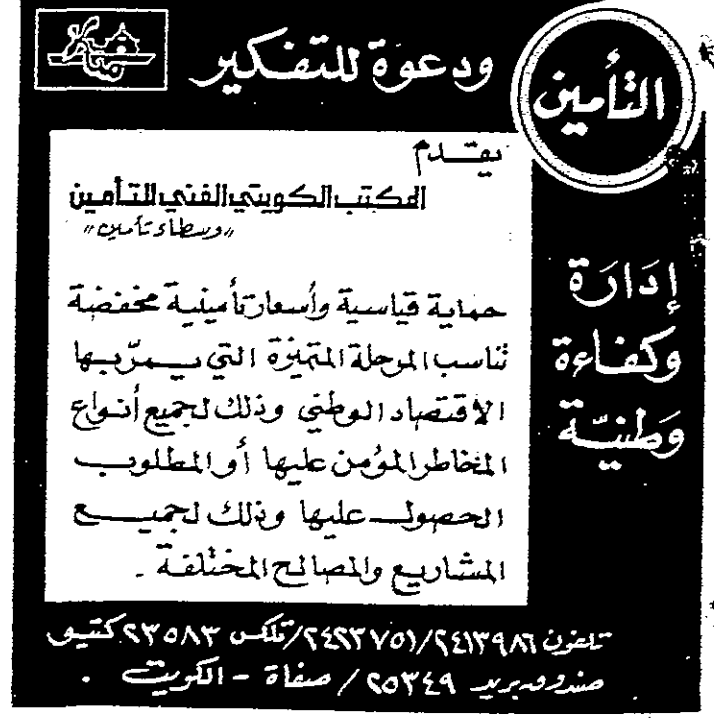 التأمين
ودعوة للتفكير
يقدم
المكتب الكويتي الفني للتأمين
"وسطاء تأمين"
إدارة
وكفاءة
وطنيّة
حماية قياسية وأسعار تأمينية مخفضة
تناسب المرحلة المتميزة التي يمرّ بها
الاقتصاد الوطني وذلك لجميع أنواع
المخاطر المؤمن عليها أو المطلوب
الحصول عليها وذلك لجميع
المشاريع والمصالح المختلفة .
تلفون ٢٤١٣٩٨٦/٢٤٢٣٧٥١/تلكس ٢٣٥٨٣ كتيف
صندوق بريد ٢٥٣٤٩ / صفاة - الكويت .